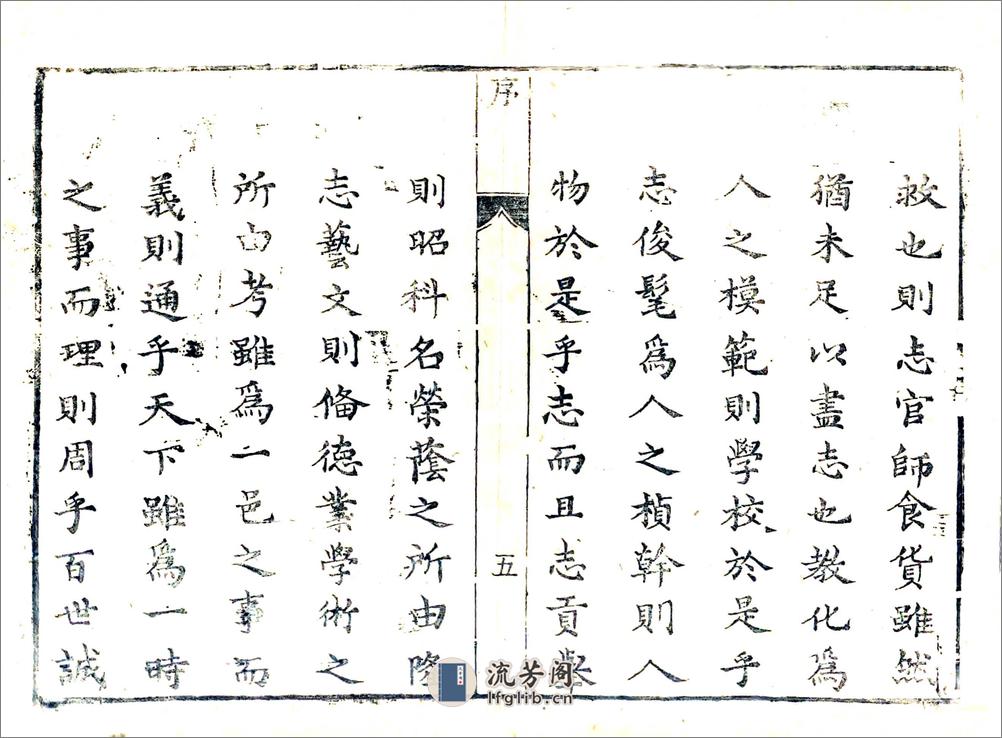 救也則志官師食貨雖然
猶未足以盡志也教化為
人之模範則學校於是乎
志俊髦為人之楨幹則人
物於是乎志而且志貢舉
序
五
則昭科名榮蔭之所由隆
志藝文則俻德業學術之
所由考雖為一邑之事而
義則通乎天下雖為一時
之事而理則周乎百世誠
流芳阁
lfglib.cn